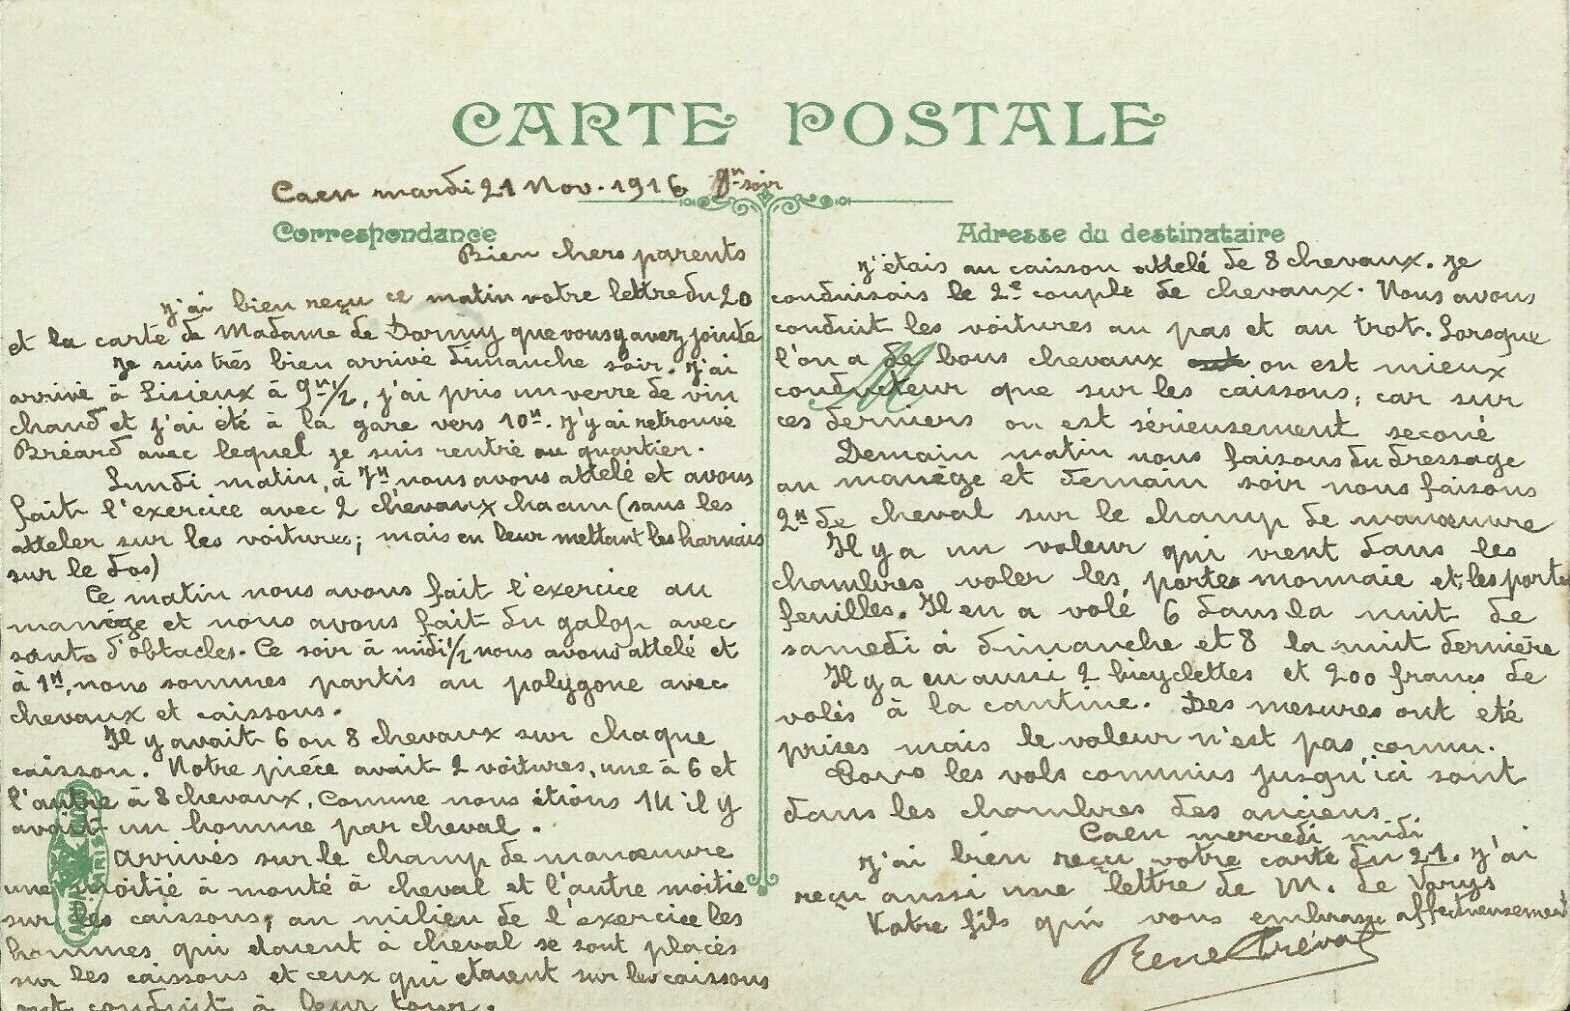 CARTE POSTALE
Caen mardi 21 Nov. 1916 soir
Correspondance
Bien chers parents
J'ai bien reçu ce matin votre lettre du 20
et la carte de Madame de Dormy que vous y avez jointe
Je suis très bien arrivé dimanche soir. J'ai
arrivé à Lisieux à 9h 1/2, j'ai pris un verre de vin
chaud et j'ai été à la gare vers 10h. J'y ai retrouvé
Bréard avec lequel je suis rentré au quartier.
Lundi matin, à 7h nous avons attelé et avons
fait l'exercice avec 2 chevaux chacun (sans les
atteler sur les voitures; mais en leur mettant les harnais
sur le dos)
Ce matin nous avons fait l'exercice au
manège et nous avons fait du galop avec
sauts d'obtacles. Ce soir à midi 1/2 nous avons attelé et
à 1h, nous sommes partis au polygone avec
chevaux et caissons.
Il y avait 6 ou 8 chevaux sur chaque
caisson. Notre pièce avait 2 voitures, une à 6 et
l'autre à 8 chevaux. Comme nous étions 14 il y
avait un homme par cheval.
Arrivés sur le champ de manœuvre
une moitié à monté à cheval et l'autre moitié
sur les caissons, au milieu de l'exercice les
hommes qui étaient à cheval se sont placés
sur les caissons et ceux qui étaient sur les caissons
ont conduit à leur tour.
Adresse du destinataire
J'étais au caisson attelé de 8 chevaux. Je
conduisais le 2e couple de chevaux. Nous avons
conduit les voitures au pas et au trot. Lorsque
l'on a de bons chevaux on est mieux
conducteur que sur les caissons, car sur
ces derniers on est sérieusement secoué
Demain matin nous faisons du dressage
au manège et demain soir nous faisons
2h de cheval sur le champ de manœuvre
Il y a un voleur qui vient dans les
chambres voler les porte monnaie et les porte
feuilles. Il en a volé 6 dans la nuit de
samedi à dimanche et 8 la nuit dernière
Il y a eu aussi 2 bicyclettes et 200 francs de
volés à la cantine. Des mesures ont été
prises mais le voleur n'est pas connu.
les vols commis jusqu'ici sont
dans les chambres des anciens
Caen mercredi midi
J'ai bien reçu votre carte du 21. J'ai
reçu aussi une lettre de M. de Varys
Votre fils qui vous embrasse affectueusement
René Tréval